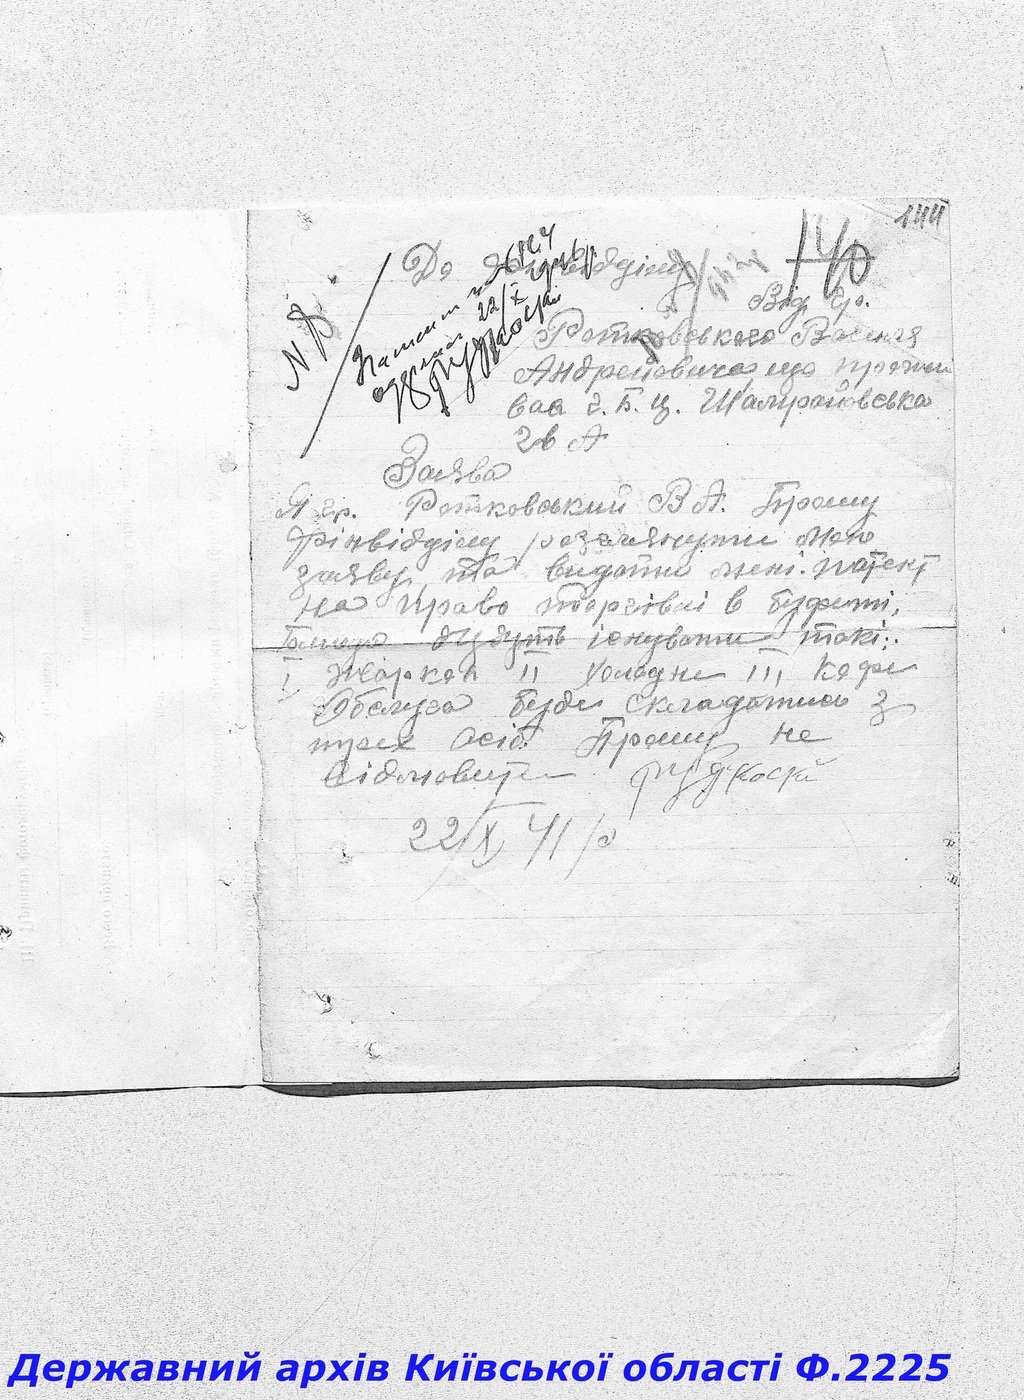 144
140
N 8
Патент
одержав 22/X
До Фінвідділу
Від гр.
Ротковського Василя
Андрейовича що прожи
ває г. Б. Ц. Шамраївська
2в А
Заява
Я гр. Ротковський В А. Прошу
Фінвідділу розглянути мою
заяву та видати мені. патент
на право торгівлі в буфеті,
будуть існувати такі:
I Жаркоє II Холодне III Кофе
Обслуга буде складатись з
трех осіб. Прошу не
відмовити
22/X 41 р
Державний архів Київської області Ф.2225